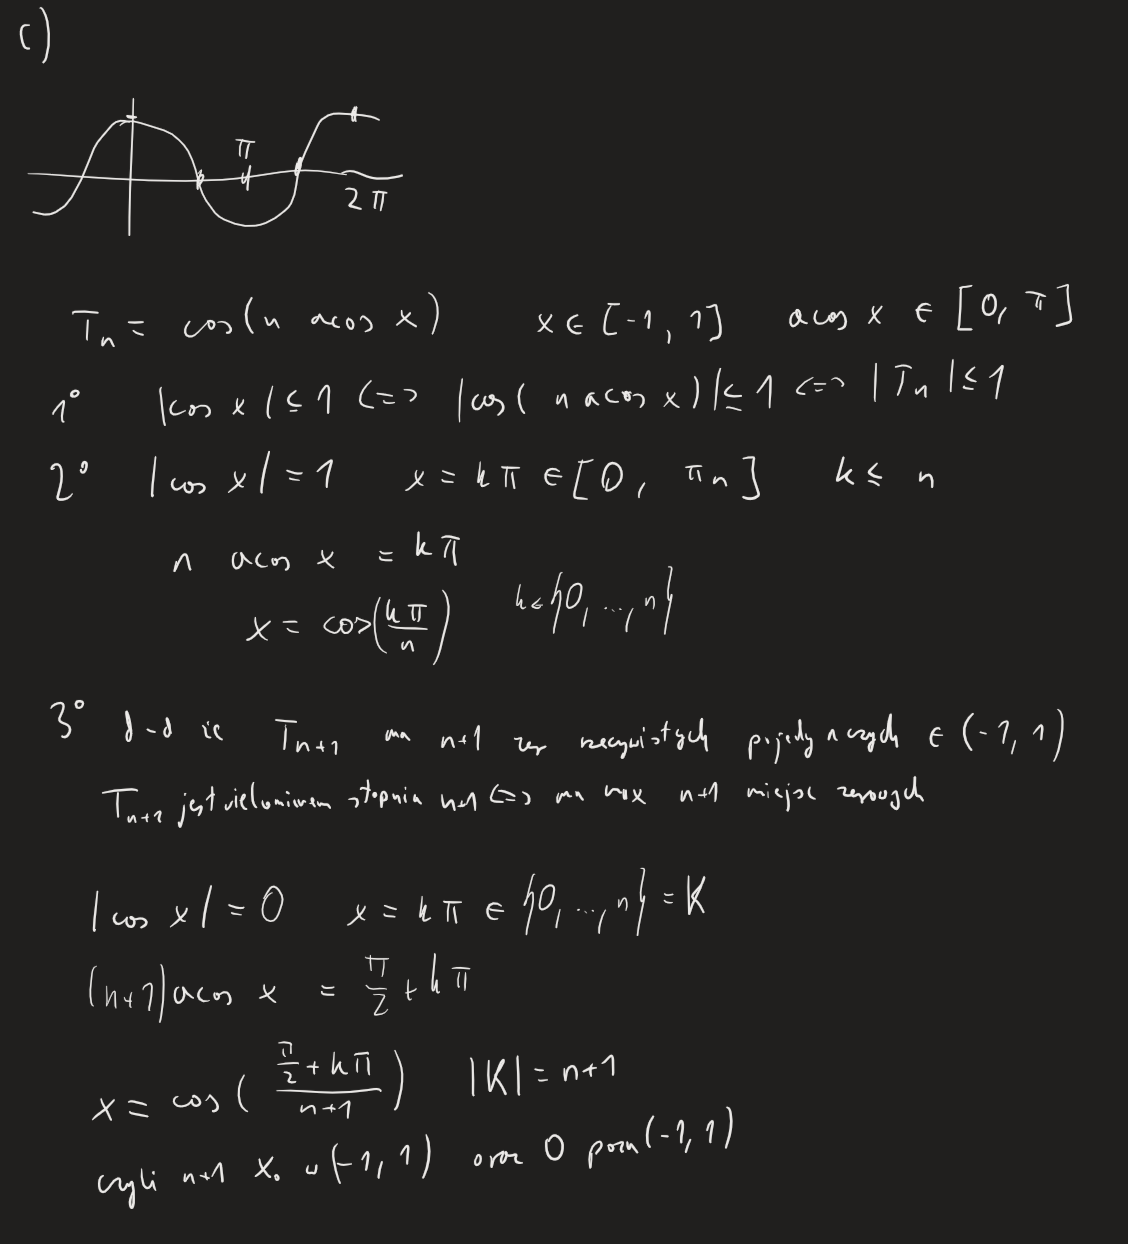 c)
π
2π
T_n = cos(n acos x) x ∈ [-1, 1] acos x ∈ [0, π]
1° |cos x| ≤ 1 <=> |cos(n acos x)| ≤ 1 <=> |T_n| ≤ 1
2° |cos x| = 1 x = kπ ∈ [0, πn] k ≤ n
n acos x = kπ
x = cos(kπ/n) k ∈ {0, ..., n}
3° d-d że T_{n+1} ma n+1 zer rzeczywistych pojedynczych ∈ (-1, 1)
T_{n+1} jest wielomianem stopnia n+1 <=> ma max n+1 miejsc zerowych
|cos x| = 0 x = kπ ∈ {0, ..., n} = K
(n+1) acos x = π/2 + kπ
x = cos((π/2 + kπ)/(n+1)) |K| = n+1
czyli n+1 x₀ w (-1, 1) oraz 0 poza (-1, 1)